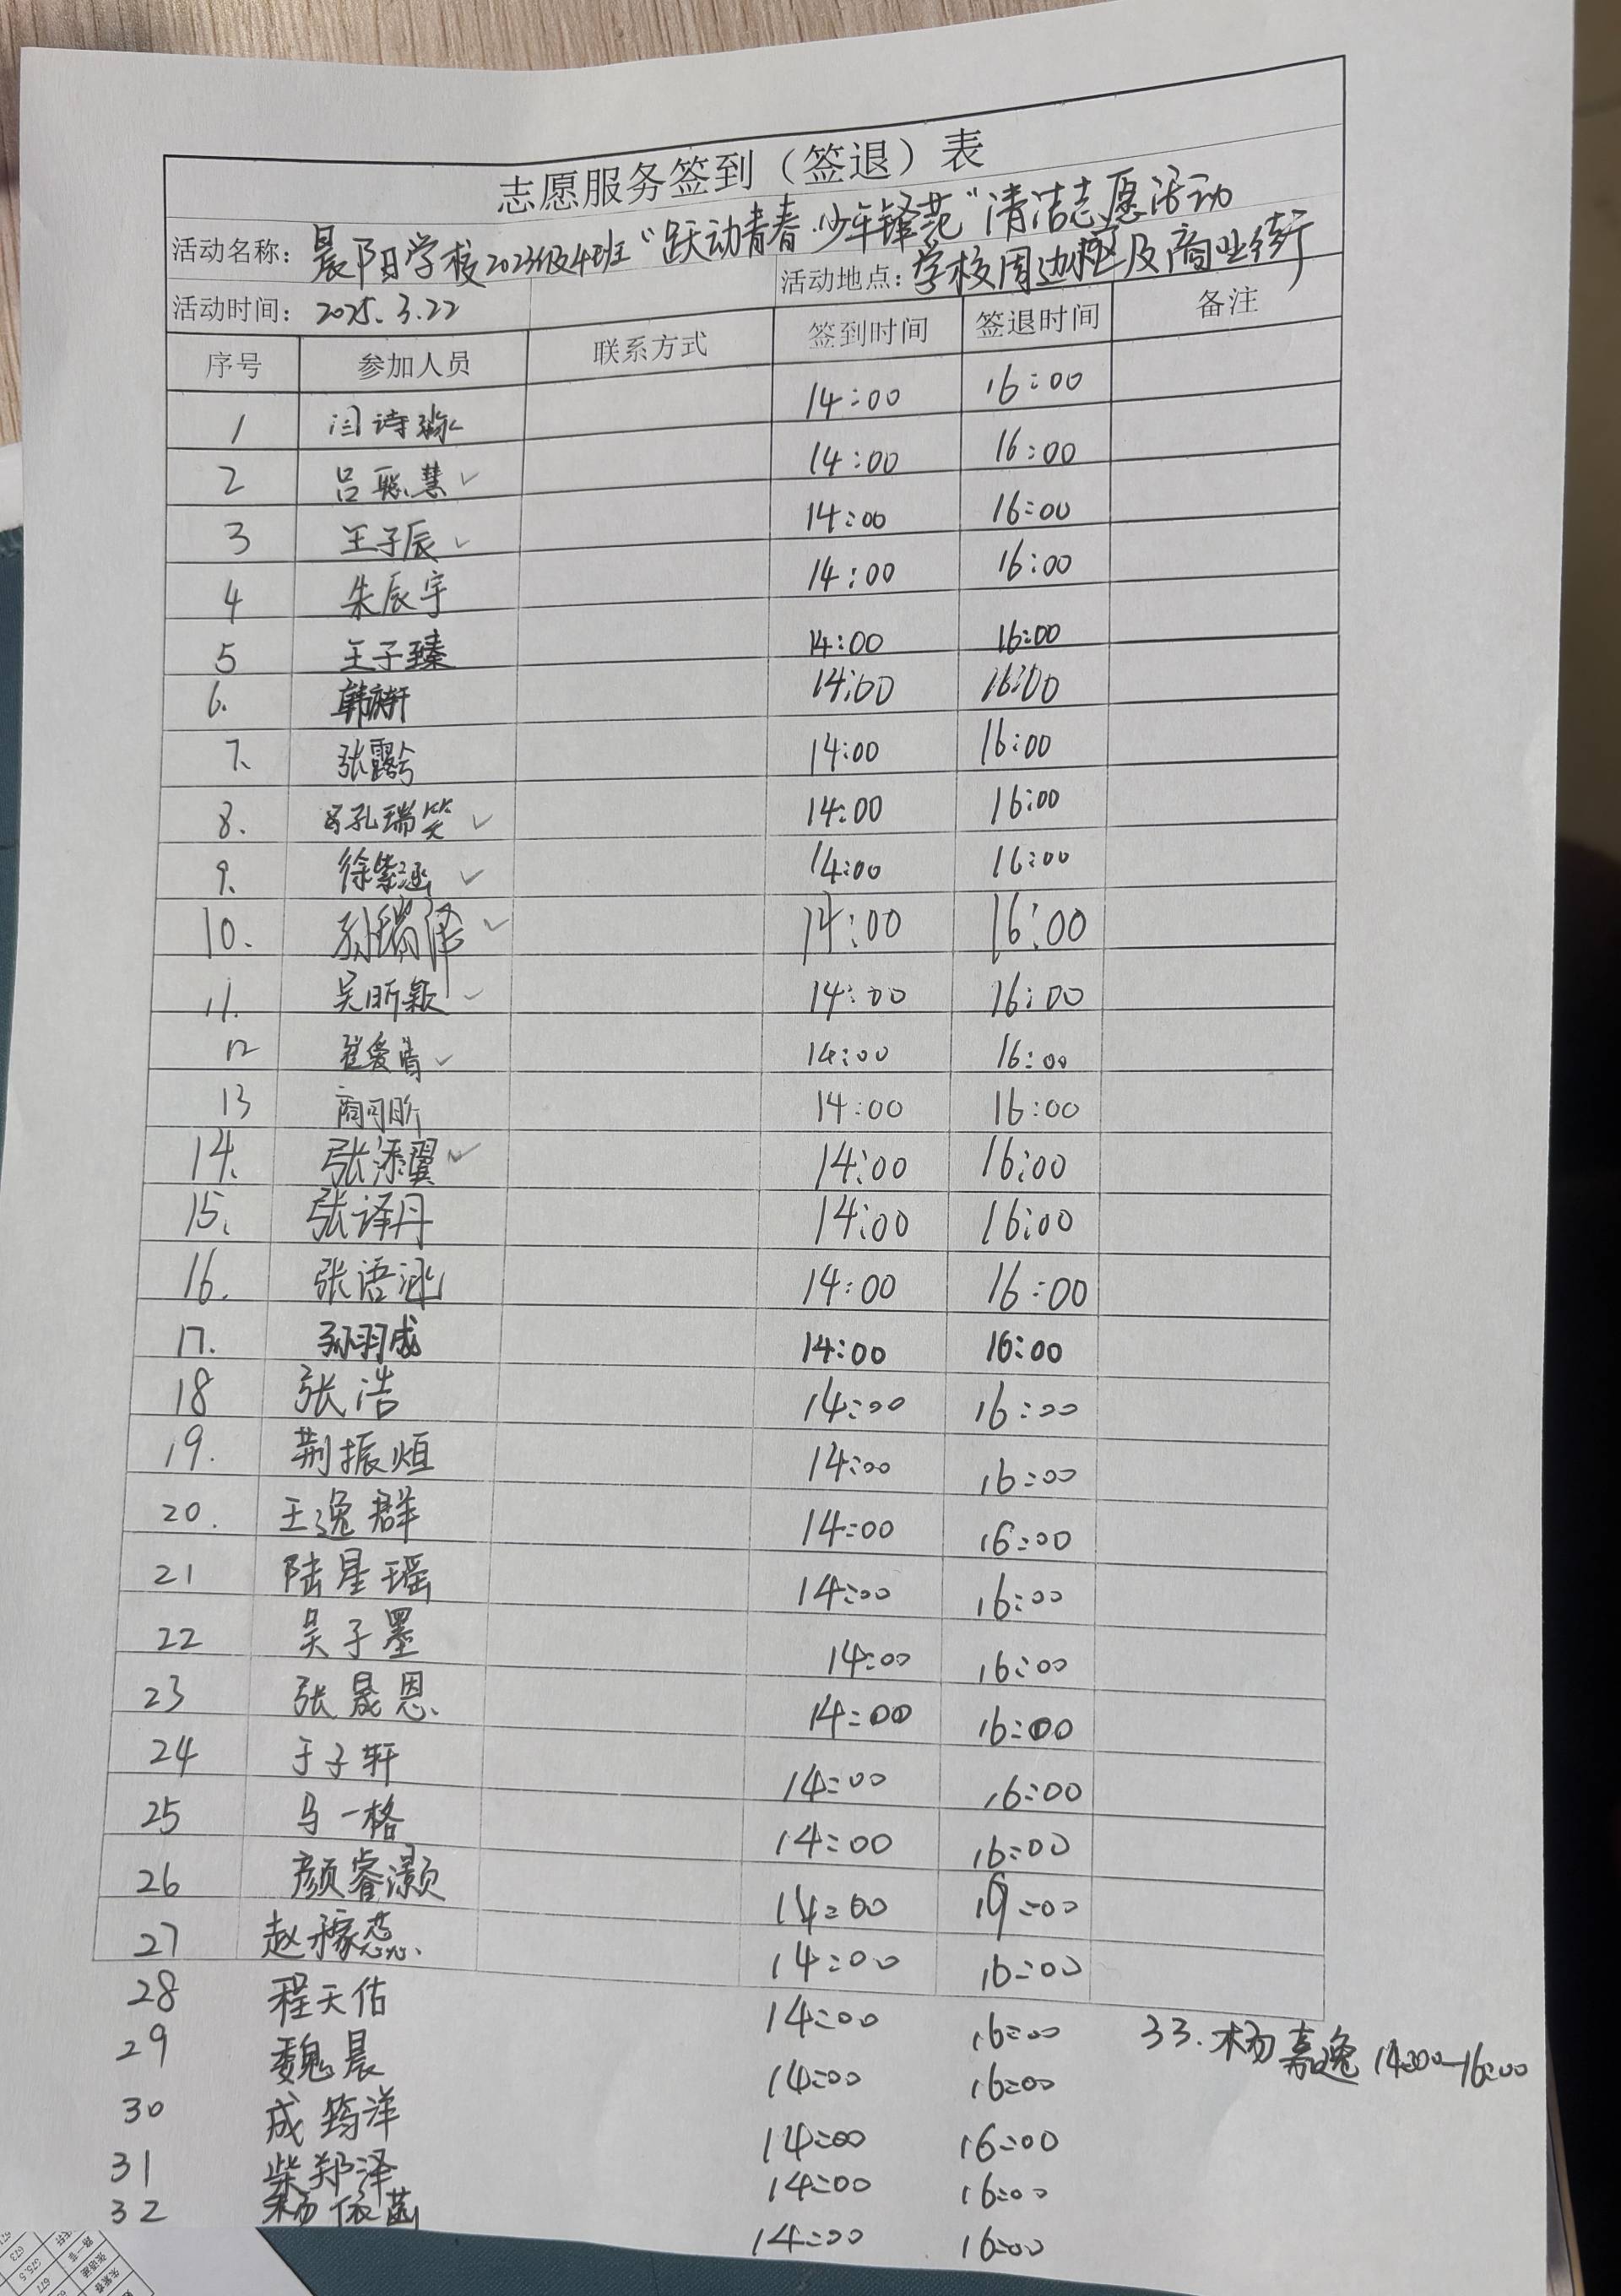 志愿服务签到（签退）表
活动名称：晨阳学校2023级4班“跃动青春·少年锋范”清洁志愿活动
活动时间：2025.3.22 活动地点：学校周边社区及商业街
序号 参加人员 联系方式 签到时间 签退时间 备注
1 闫诗 14:00 16:00
2 吕聪慧 ✓ 14:00 16:00
3 王子辰 ✓ 14:00 16:00
4 朱辰宇 14:00 16:00
5 王子臻 14:00 16:00
6. 韩 轩 14:00 16:00
7、 张露 14:00 16:00
8. 孔瑞笑 ✓ 14:00 16:00
9、 徐紫涵 ✓ 14:00 16:00
10. 孙瑞泽 ✓ 14:00 16:00
11. 吴昕颖 ✓ 14:00 16:00
12 崔爱青 ✓ 14:00 16:00
13 商可昕 14:00 16:00
14、 张添翼 ✓ 14:00 16:00
15、 张译丹 14:00 16:00
16. 张语涵 14:00 16:00
17. 孙羽成 14:00 16:00
18 张浩 14:00 16:00
19. 荆振烜 14:00 16:00
20. 王逸群 14:00 16:00
21 陆星瑶 14:00 16:00
22 吴子墨 14:00 16:00
23 张晟恩 14:00 16:00
24 于子轩 14:00 16:00
25 马一格 14:00 16:00
26 颜睿灏 14:00 16:00
27 赵稼蕊 14:00 16:00
28 程天佑 14:00 16:00
29 魏晨 14:00 16:00
33. 杨嘉逸 14:00—16:00
30 成筠洋 14:00 16:00
31 柴郑泽 14:00 16:00
32 杨依菡 14:00 16:00